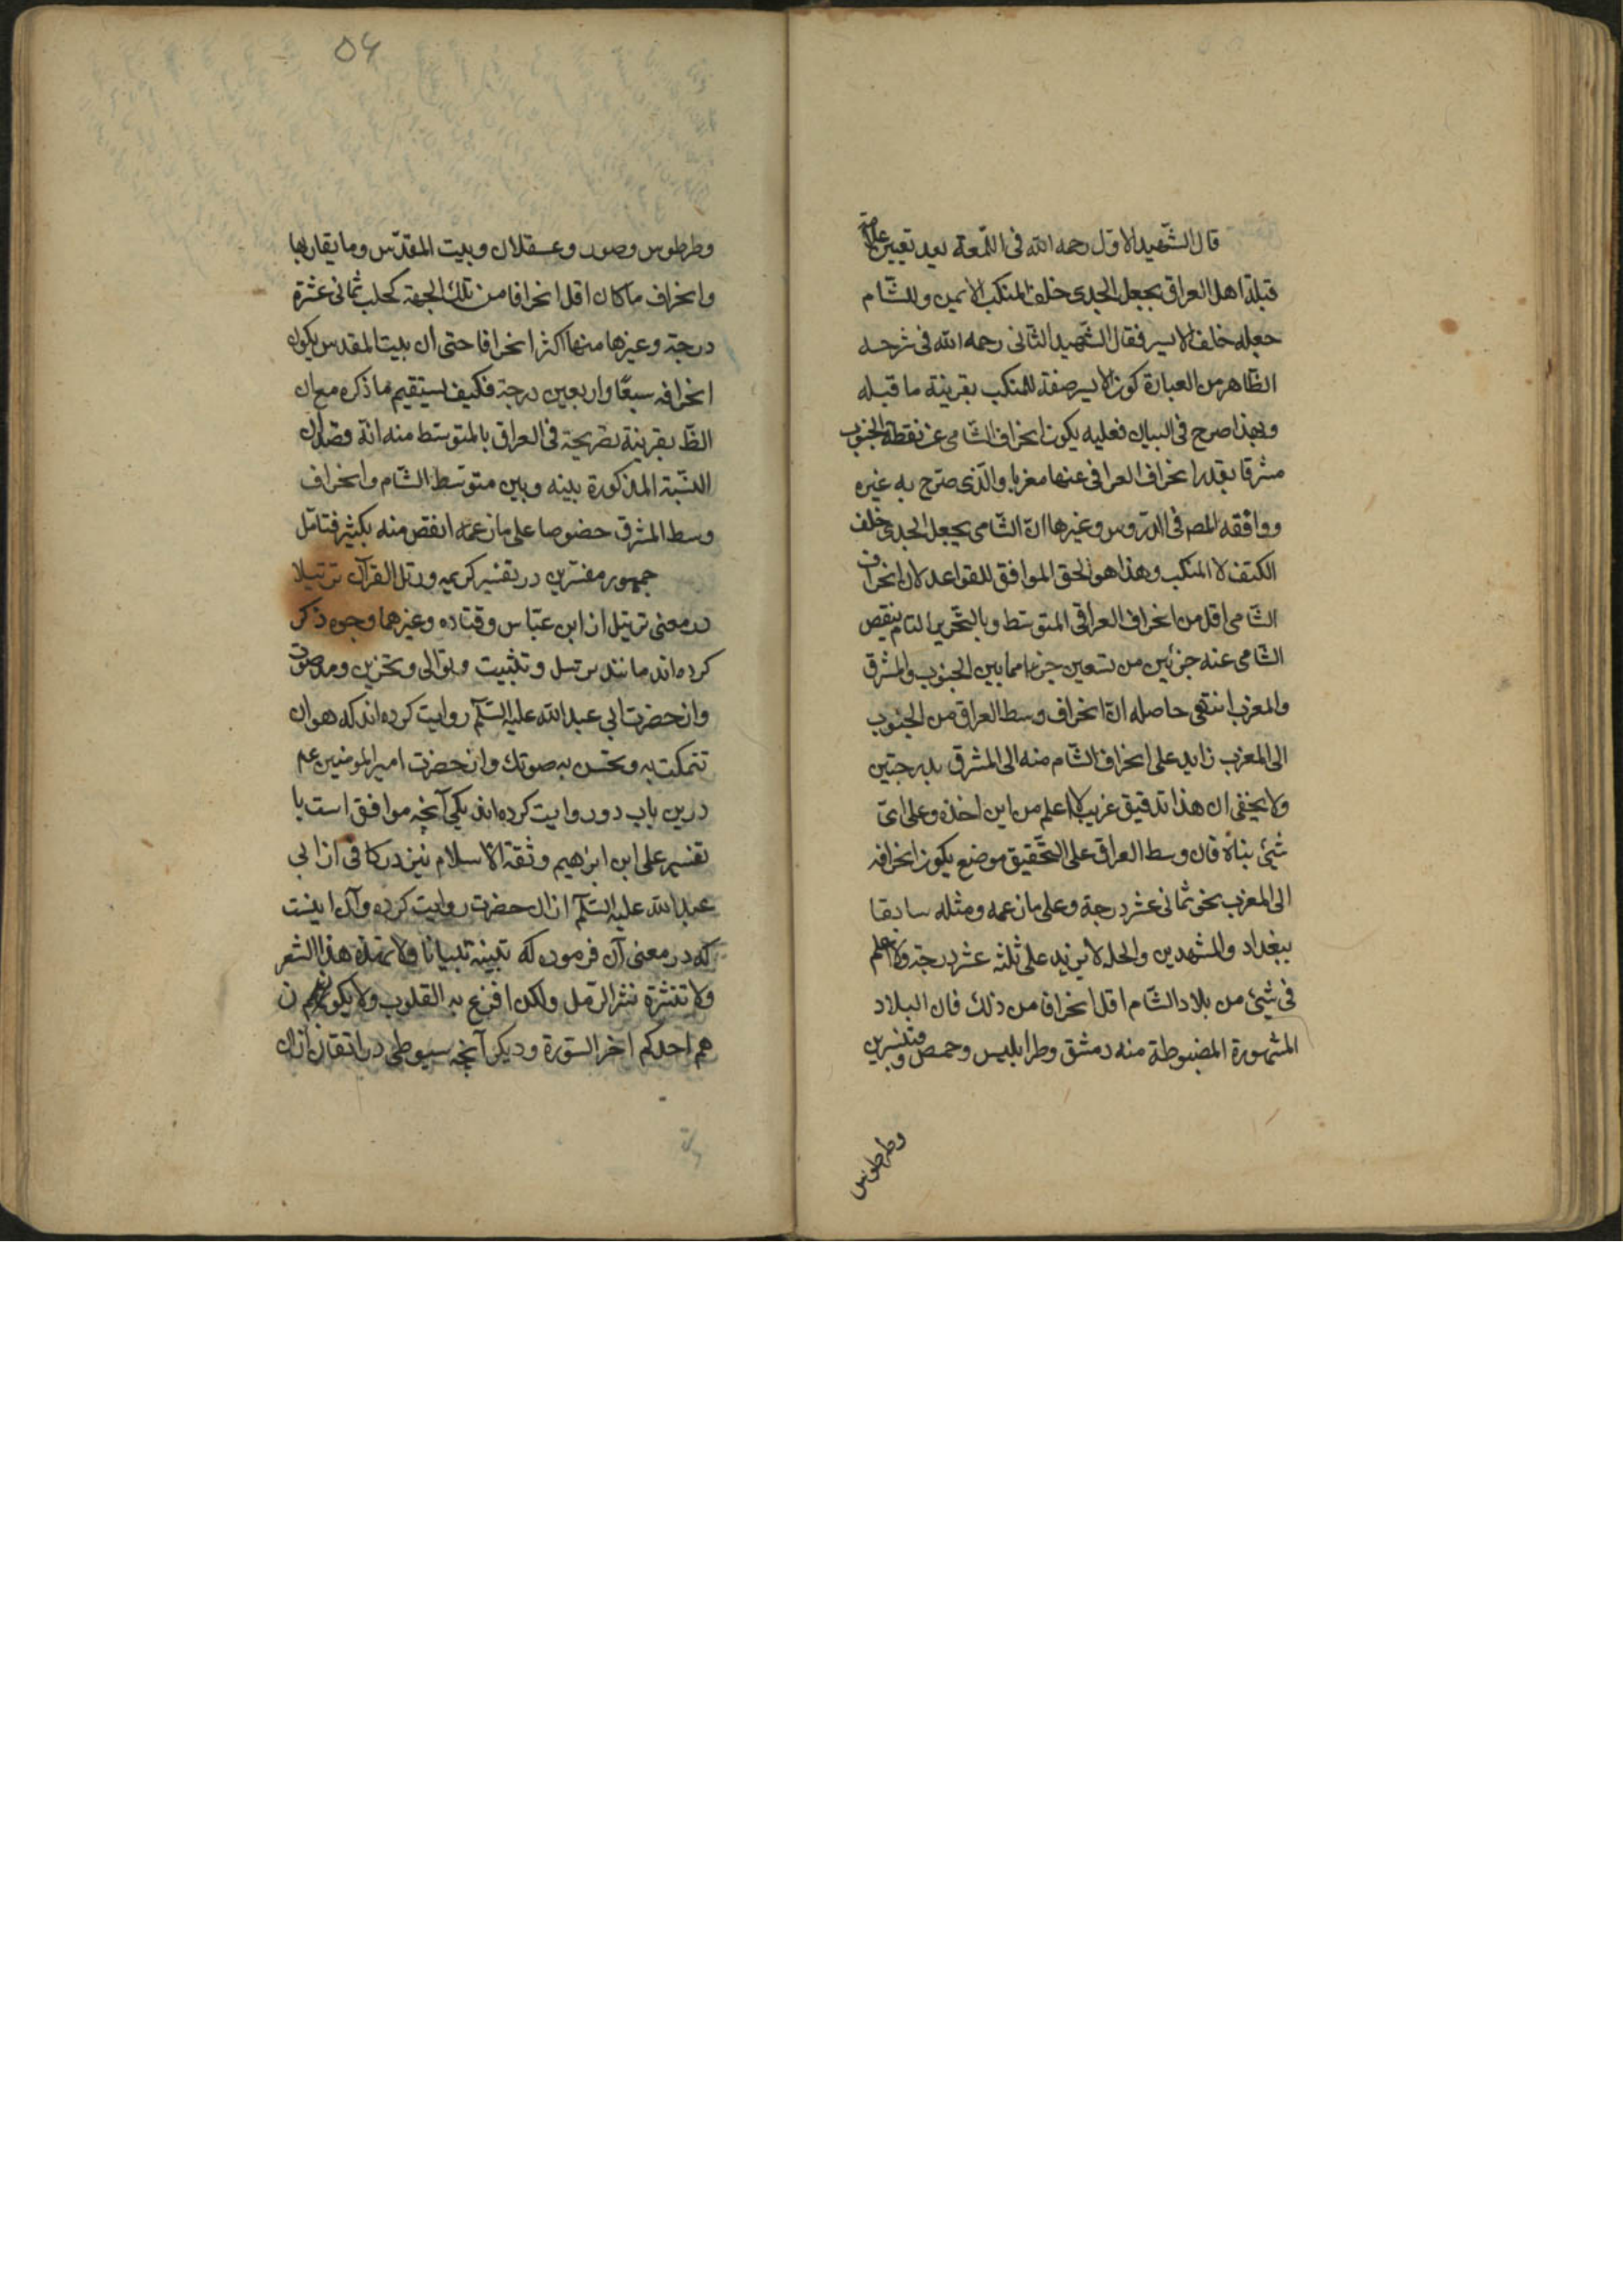 قال الشّهيد الاوّل رحمه الله فى اللّمعة بعد تعيين علامة
قبلة اهل العراق بجعل الجدى خلف المنكب الايمن وللشّام
جعله خلف الايسر فقال الشّهيد الثّانى رحمه الله فى شرحه
الظّاهر من العبارة كون الايسر صفة للمنكب بقرينة ما قبله
وبهذا صرح فى البيان فعليه يكون انحراف الشّامى عن نقطة الجنوب
مشرقا بقدر انحراف العراقى عنها مغربا والّذى صرّح به غيره
ووافقه المص فى الدّروس وغيرها انّ الشّامى يجعل الجدى خلف
الكتف لا المنكب وهذا هو الحق الموافق للقواعد لان انحراف
الشّامى اقل من انحراف العراقى المتوسّط وبالتّحرير التام ينقص
الشّامى عنه جزئين من تسعين جزءا مما بين الجنوب والمشرق
والمغرب انتهى حاصله انّ انحراف وسط العراق من الجنوب
الى المغرب زايد على انحراف الشّام منه الى المشرق بدرجتين
ولا يخفى ان هذا تدقيق غريب لا اعلم من اين اخذه وعلى اىّ
شئ بناه فان وسط العراق على التّحقيق موضع يكون انحرافه
الى المغرب نحو ثمانى عشر درجة وعلى ما زعمه ومثله سابقا
ببغداد والمشهدين والحله لا يزيد على ثلثه عشر درجة ولا اعلم
فى شئ من بلاد الشّام اقل انحرافا من ذلك فان البلاد
المشهورة المضبوطة منه دمشق وطرابليس وحمص وقنسرين
وطرطوس
٥٤
وطرطوس وصور وعسقلان وبيت المقدّس وما يقاربها
وانحراف ما كان اقل انحرافا من تلك الجهة كحلب ثمانى عشرة
درجة وغيرها منها اكثر انحرافا حتى ان بيت المقدس يكون
انحرافه سبعًا واربعين درجة فكيف يستقيم ما ذكره مع ان
الظ بقرينة تصريحه فى العراق بالمتوسّط منه انّه قصد ان
النسّبة المذكورة بينه وبين متوسّط الشّام وانحراف
وسط المشرق خصوصا على ما زعمه انقص منه بكثير فتامّل
جمهور مفسّرين در تفسير كريمه ورتل القرآن ترتيلا
در معنى ترتيل از ابن عبّاس وقتاده وغيرهما وجوه ذكر
كرده اند مانند ترسل وتثبيت وتوالى وتحزين ومد صوت
واز حضرت ابي عبد الله عليه السّلم روايت كرده اند كه هو ان
تتمكث به وتحسن به صوتك واز حضرت امير المؤمنين عم
درين باب دو روايت كرده اند يكى آنچه موافق است با
تفسير على ابن ابرهيم وثقة الاسلام نيز در كافى از ابى
عبد الله عليه السّلم از ان حضرت روايت كرده وآن اينست
كه در معنى آن فرموده كه تبينه تبيانا ولا تهذه هذا الشعر
ولا تنثره نثر الرّمل ولكن افزع به القلوب ولا يكون
هم احدكم اخر السّورة وديكر آنچه سيوطى در اتقان از ان